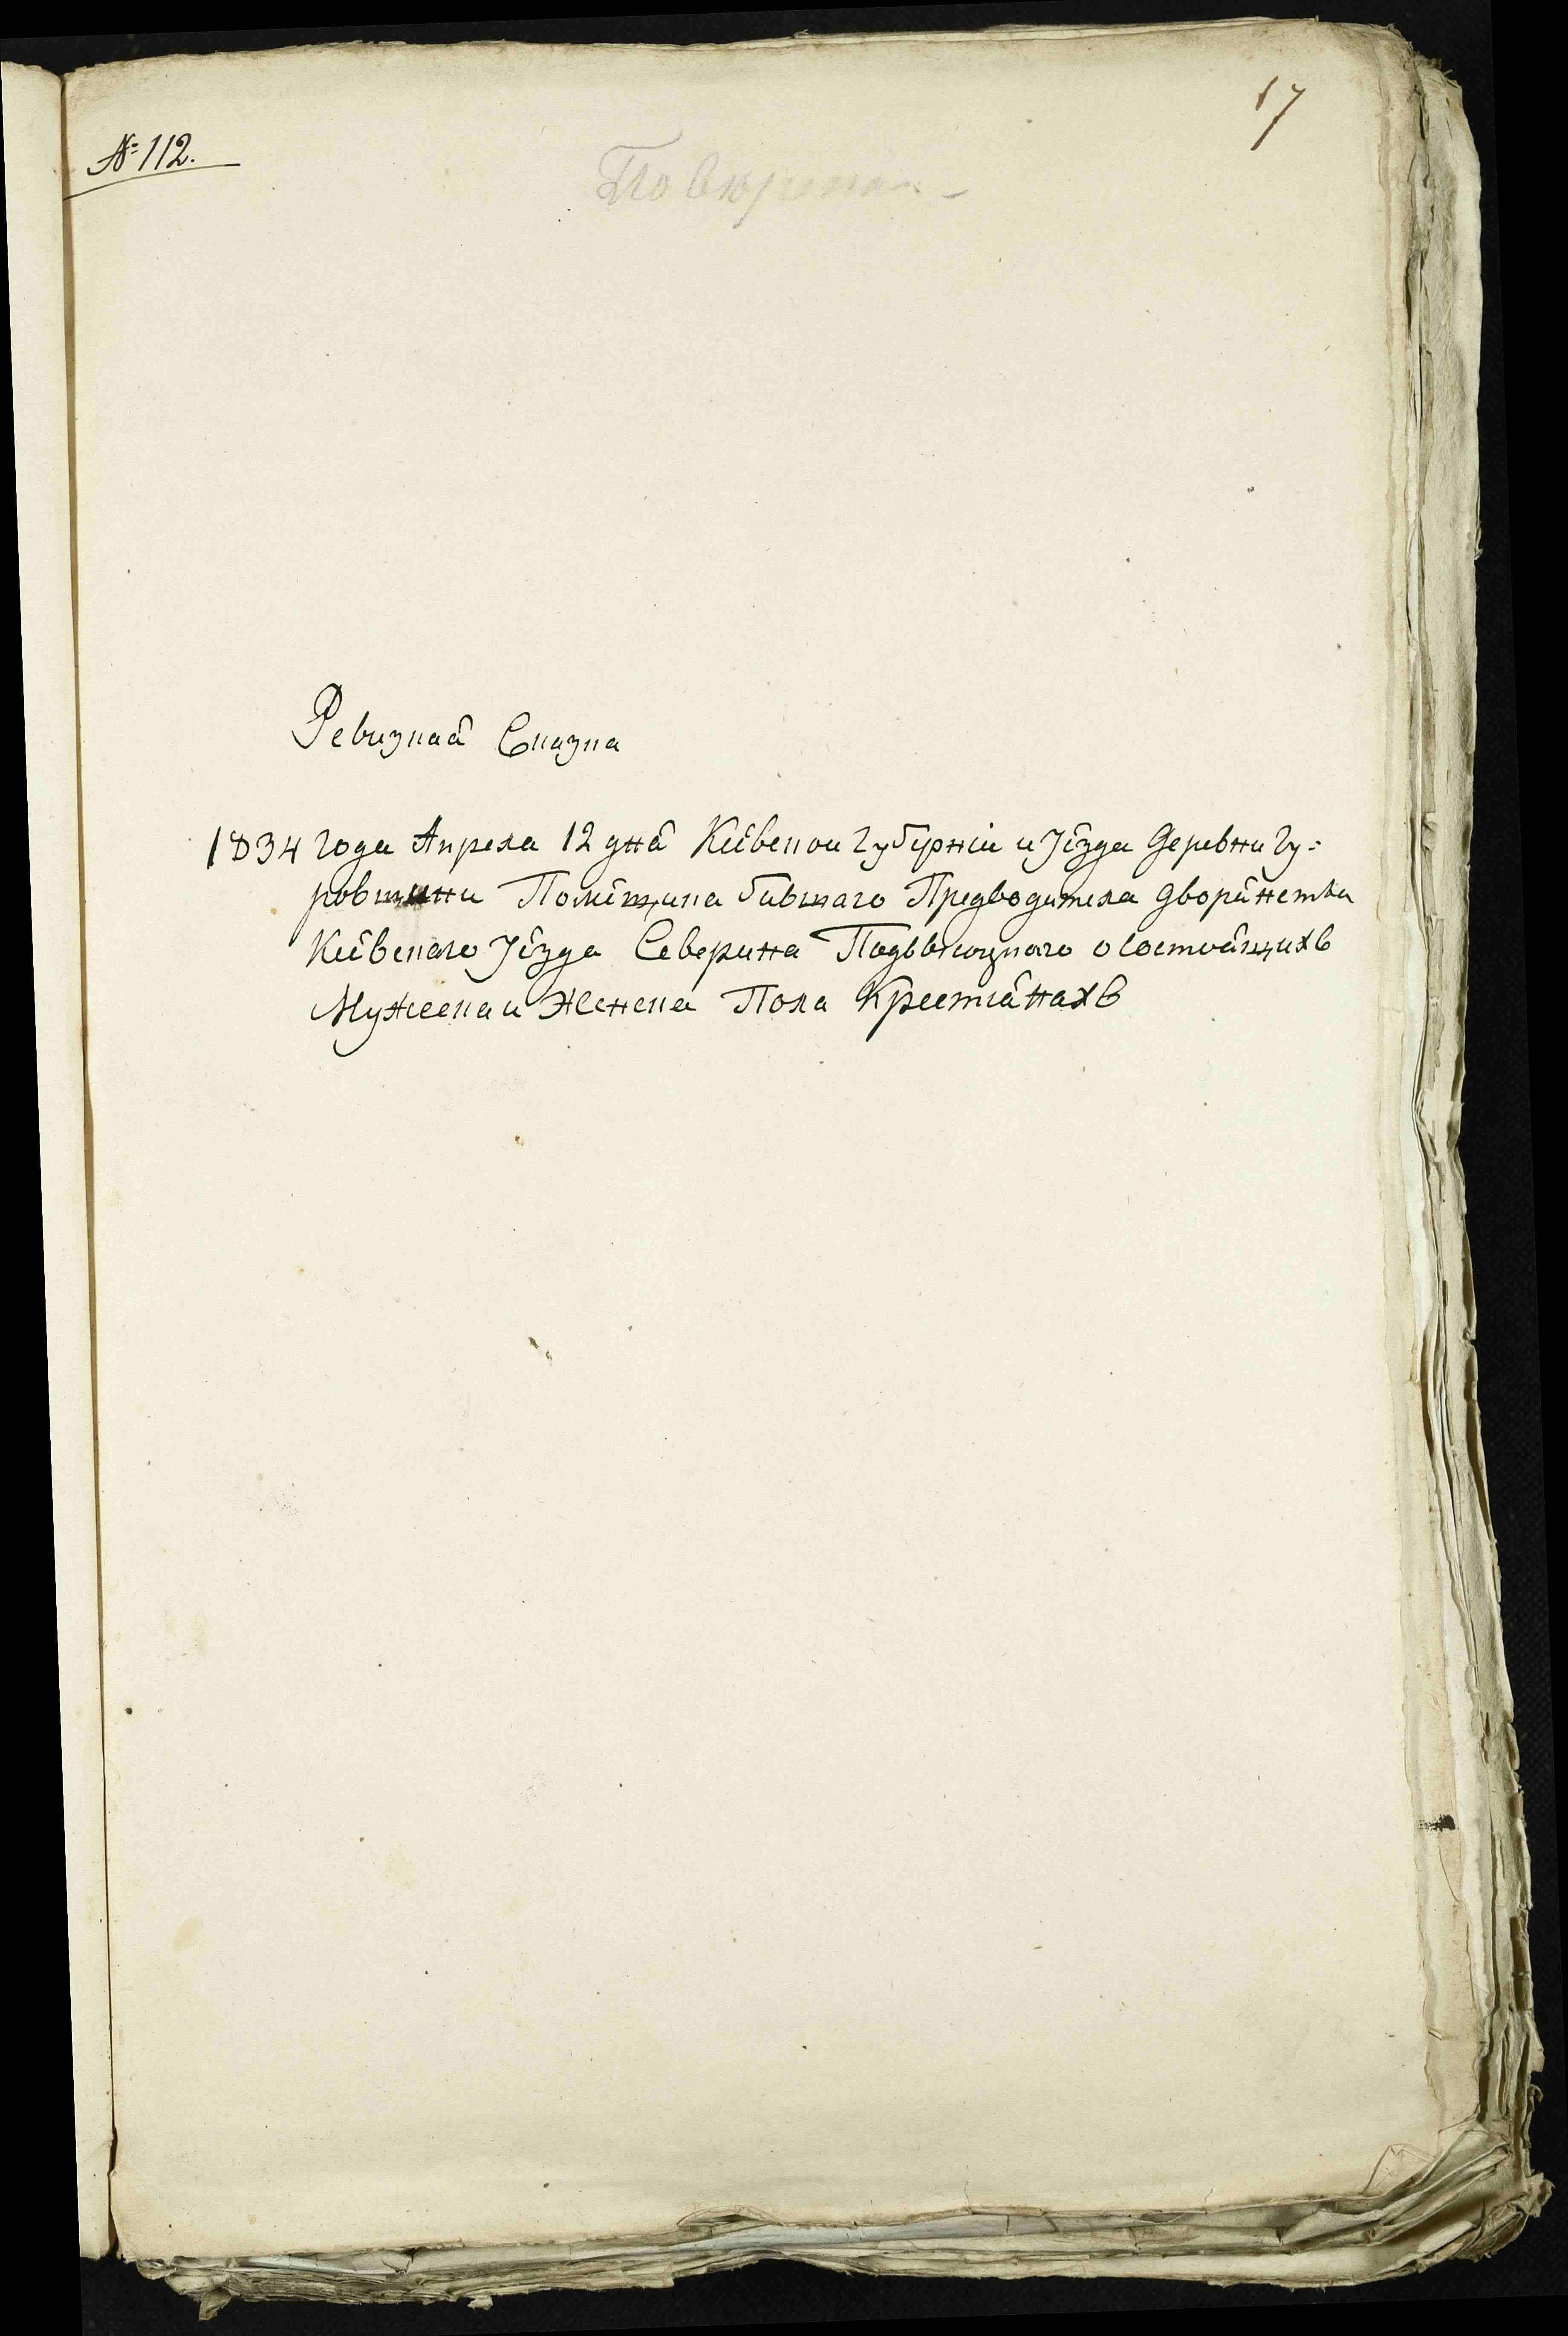 17
№ 112.
Ревизная Сказка
1834 года Апреля 12 дня Киевской Губернiи и Уезда Деревни Гу-
ровщини Помещика бившаго Предводителя дворянства
Киевскаго Уезда Северина Подвысоцкаго о состоящихъ
Мужеска и Женска Пола Крестiянахъ